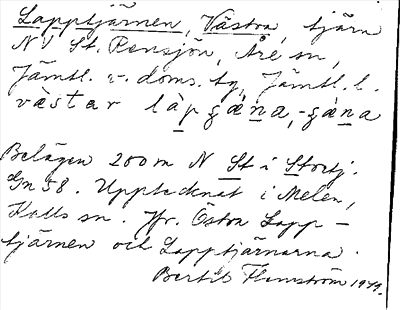 Lapptjärnen, Västra, tjärn
NV St. Rensjön, Åre sn,
Jämtl. v. doms. tg, Jämtl. l.
vä̀star là̀pʒäna, -ʒäna
Belägen 200 m N St i Stortj.
Gn 58. Upptecknat i Melen,
Kalls sn. Jfr. Östra Lapp-
tjärnen och Lapptjärnarna.
Bertil Flemström 1949.